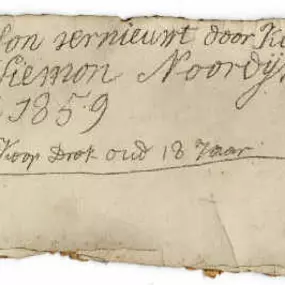 vernieuwt door
Siemon Noordij
1859
Koop Drok oud 18 Jaar